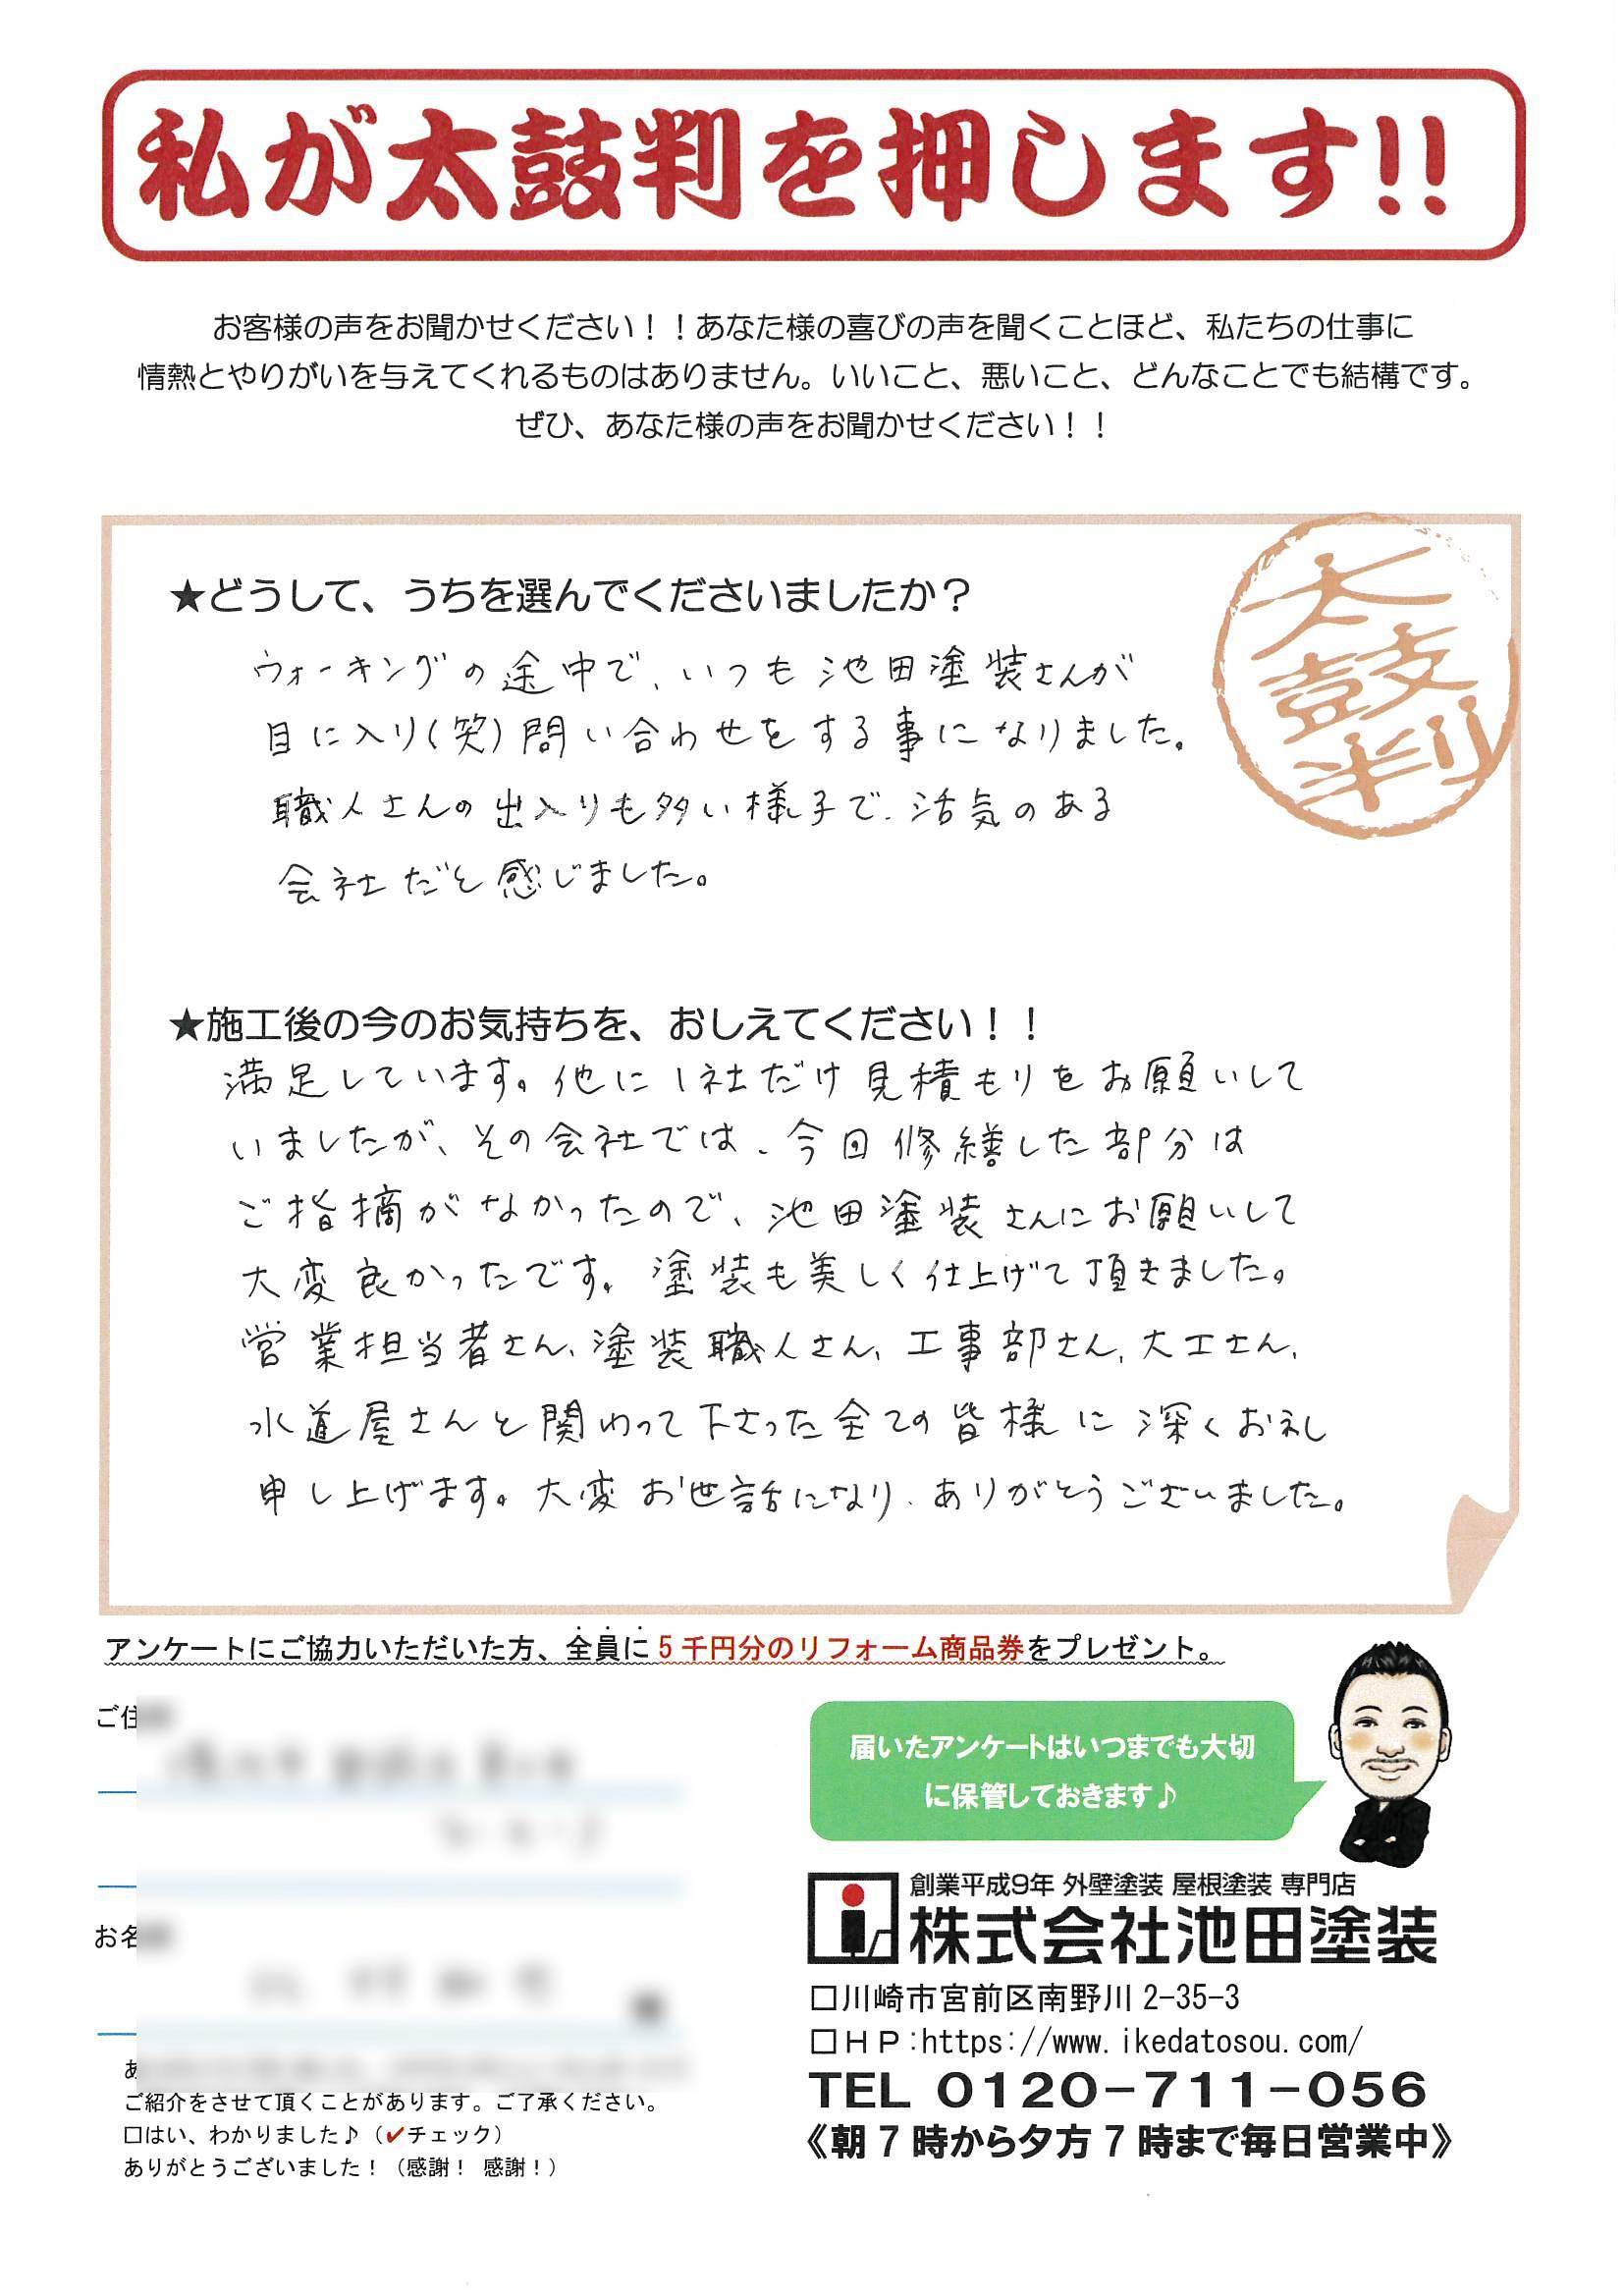 私が太鼓判を押します!!
お客様の声をお聞かせください！！あなた様の喜びの声を聞くことほど、私たちの仕事に
情熱とやりがいを与えてくれるものはありません。いいこと、悪いこと、どんなことでも結構です。
ぜひ、あなた様の声をお聞かせください！！
太鼓判
★どうして、うちを選んでくださいましたか？
ウォーキングの途中で、いつも池田塗装さんが
目に入り(笑)問い合わせをする事になりました。
職人さんの出入りも多い様子で、活気のある
会社だと感じました。
★施工後の今のお気持ちを、おしえてください！！
満足しています。他に1社だけ見積もりをお願いして
いましたが、その会社では、今回修繕した部分は
ご指摘がなかったので、池田塗装さんにお願いして
大変良かったです。塗装も美しく仕上げて頂きました。
営業担当者さん、塗装職人さん、工事部さん、大工さん、
水道屋さんと関わって下さった全ての皆様に深くお礼
申し上げます。大変お世話になり、ありがとうございました。
アンケートにご協力いただいた方、全員に5千円分のリフォーム商品券をプレゼント。
ご住
お名
あ
ご紹介をさせて頂くことがあります。ご了承ください。
□はい、わかりました♪（✔チェック）
ありがとうございました！（感謝！ 感謝！）
届いたアンケートはいつまでも大切
に保管しておきます♪
創業平成9年 外壁塗装 屋根塗装 専門店
株式会社池田塗装
□川崎市宮前区南野川2-35-3
□ＨＰ:https://www.ikedatosou.com/
TEL 0120-711-056
《朝7時から夕方7時まで毎日営業中》